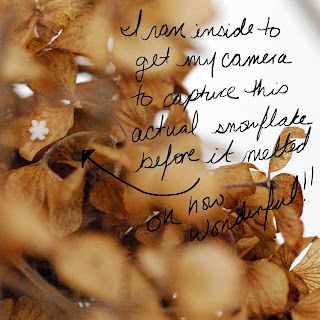 I ran inside to
get my camera
to capture this
actual snowflake
before it melted
oh how
wonderful!!